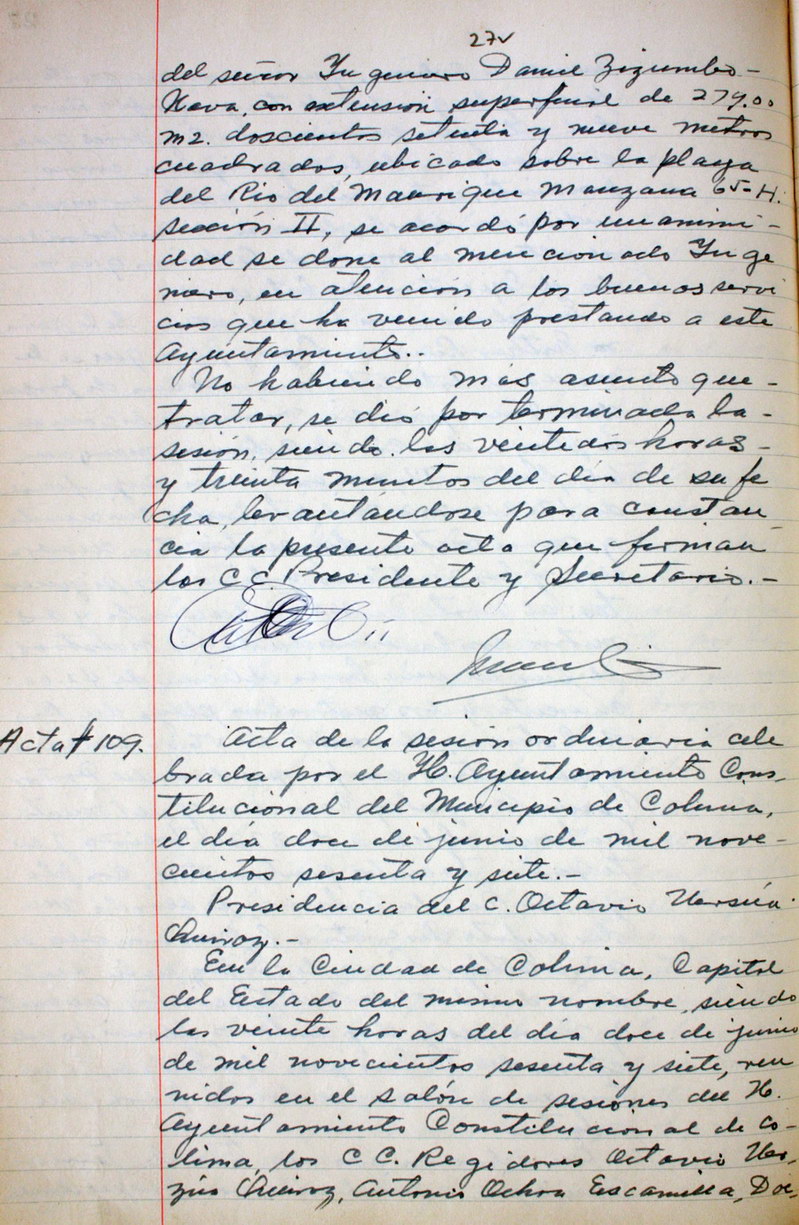 27v
del señor Ingeniero Daniel Zizumbo-
Nava, con extensión superficial de 279.00
m2. doscientos setenta y nueve metros
cuadrados, ubicado sobre la playa
del Rio del Manrique Manzana 65-H.
sección II, se acordó por unanimi-
dad se done al mencionado Inge
niero, en atención a los buenos servi
cios que ha venido prestando a este
Ayuntamiento..
No habiendo más asunto que-
tratar, se dió por terminada la-
sesión, siendo las veintedós horas-
y treinta minutos del día de su fe
cha, levantándose para constan
cia la presente acta que firman
los C.C. Presidente y Secretario.-
Acta # 109.
Acta de la sesión ordinaria cele
brada por el H. Ayuntamiento Cons-
titucional del Municipio de Colima,
el día doce de junio de mil nove-
cientos sesenta y siete.-
Presidencia del C. Octavio
Quiroz.-
En la Ciudad de Colima, Capital
del Estado del mismo nombre, siendo
las veinte horas del día doce de junio
de mil novecientos sesenta y siete, reu
nidos en el salón de sesiones del H.
Ayuntamiento Constitucional de Co-
lima, los C.C. Regidores Octavio
Quiroz, Antonio Ochoa Escamilla, Doc,